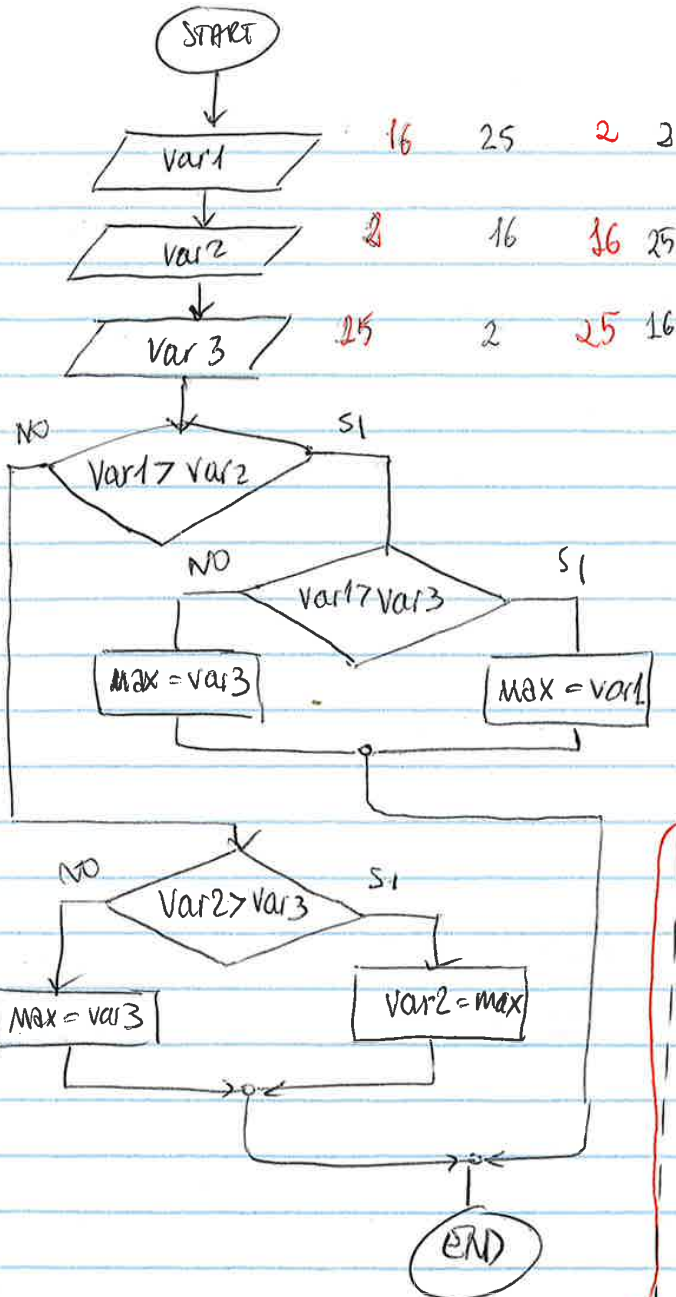 START
var1 16 25 2 2
var2 2 16 16 25
var 3 25 2 25 16
NO SI
var1> var2
NO SI
var1>var3
max = var3 max = var1
NO SI
var2>var3
max = var3 var2 = max
END